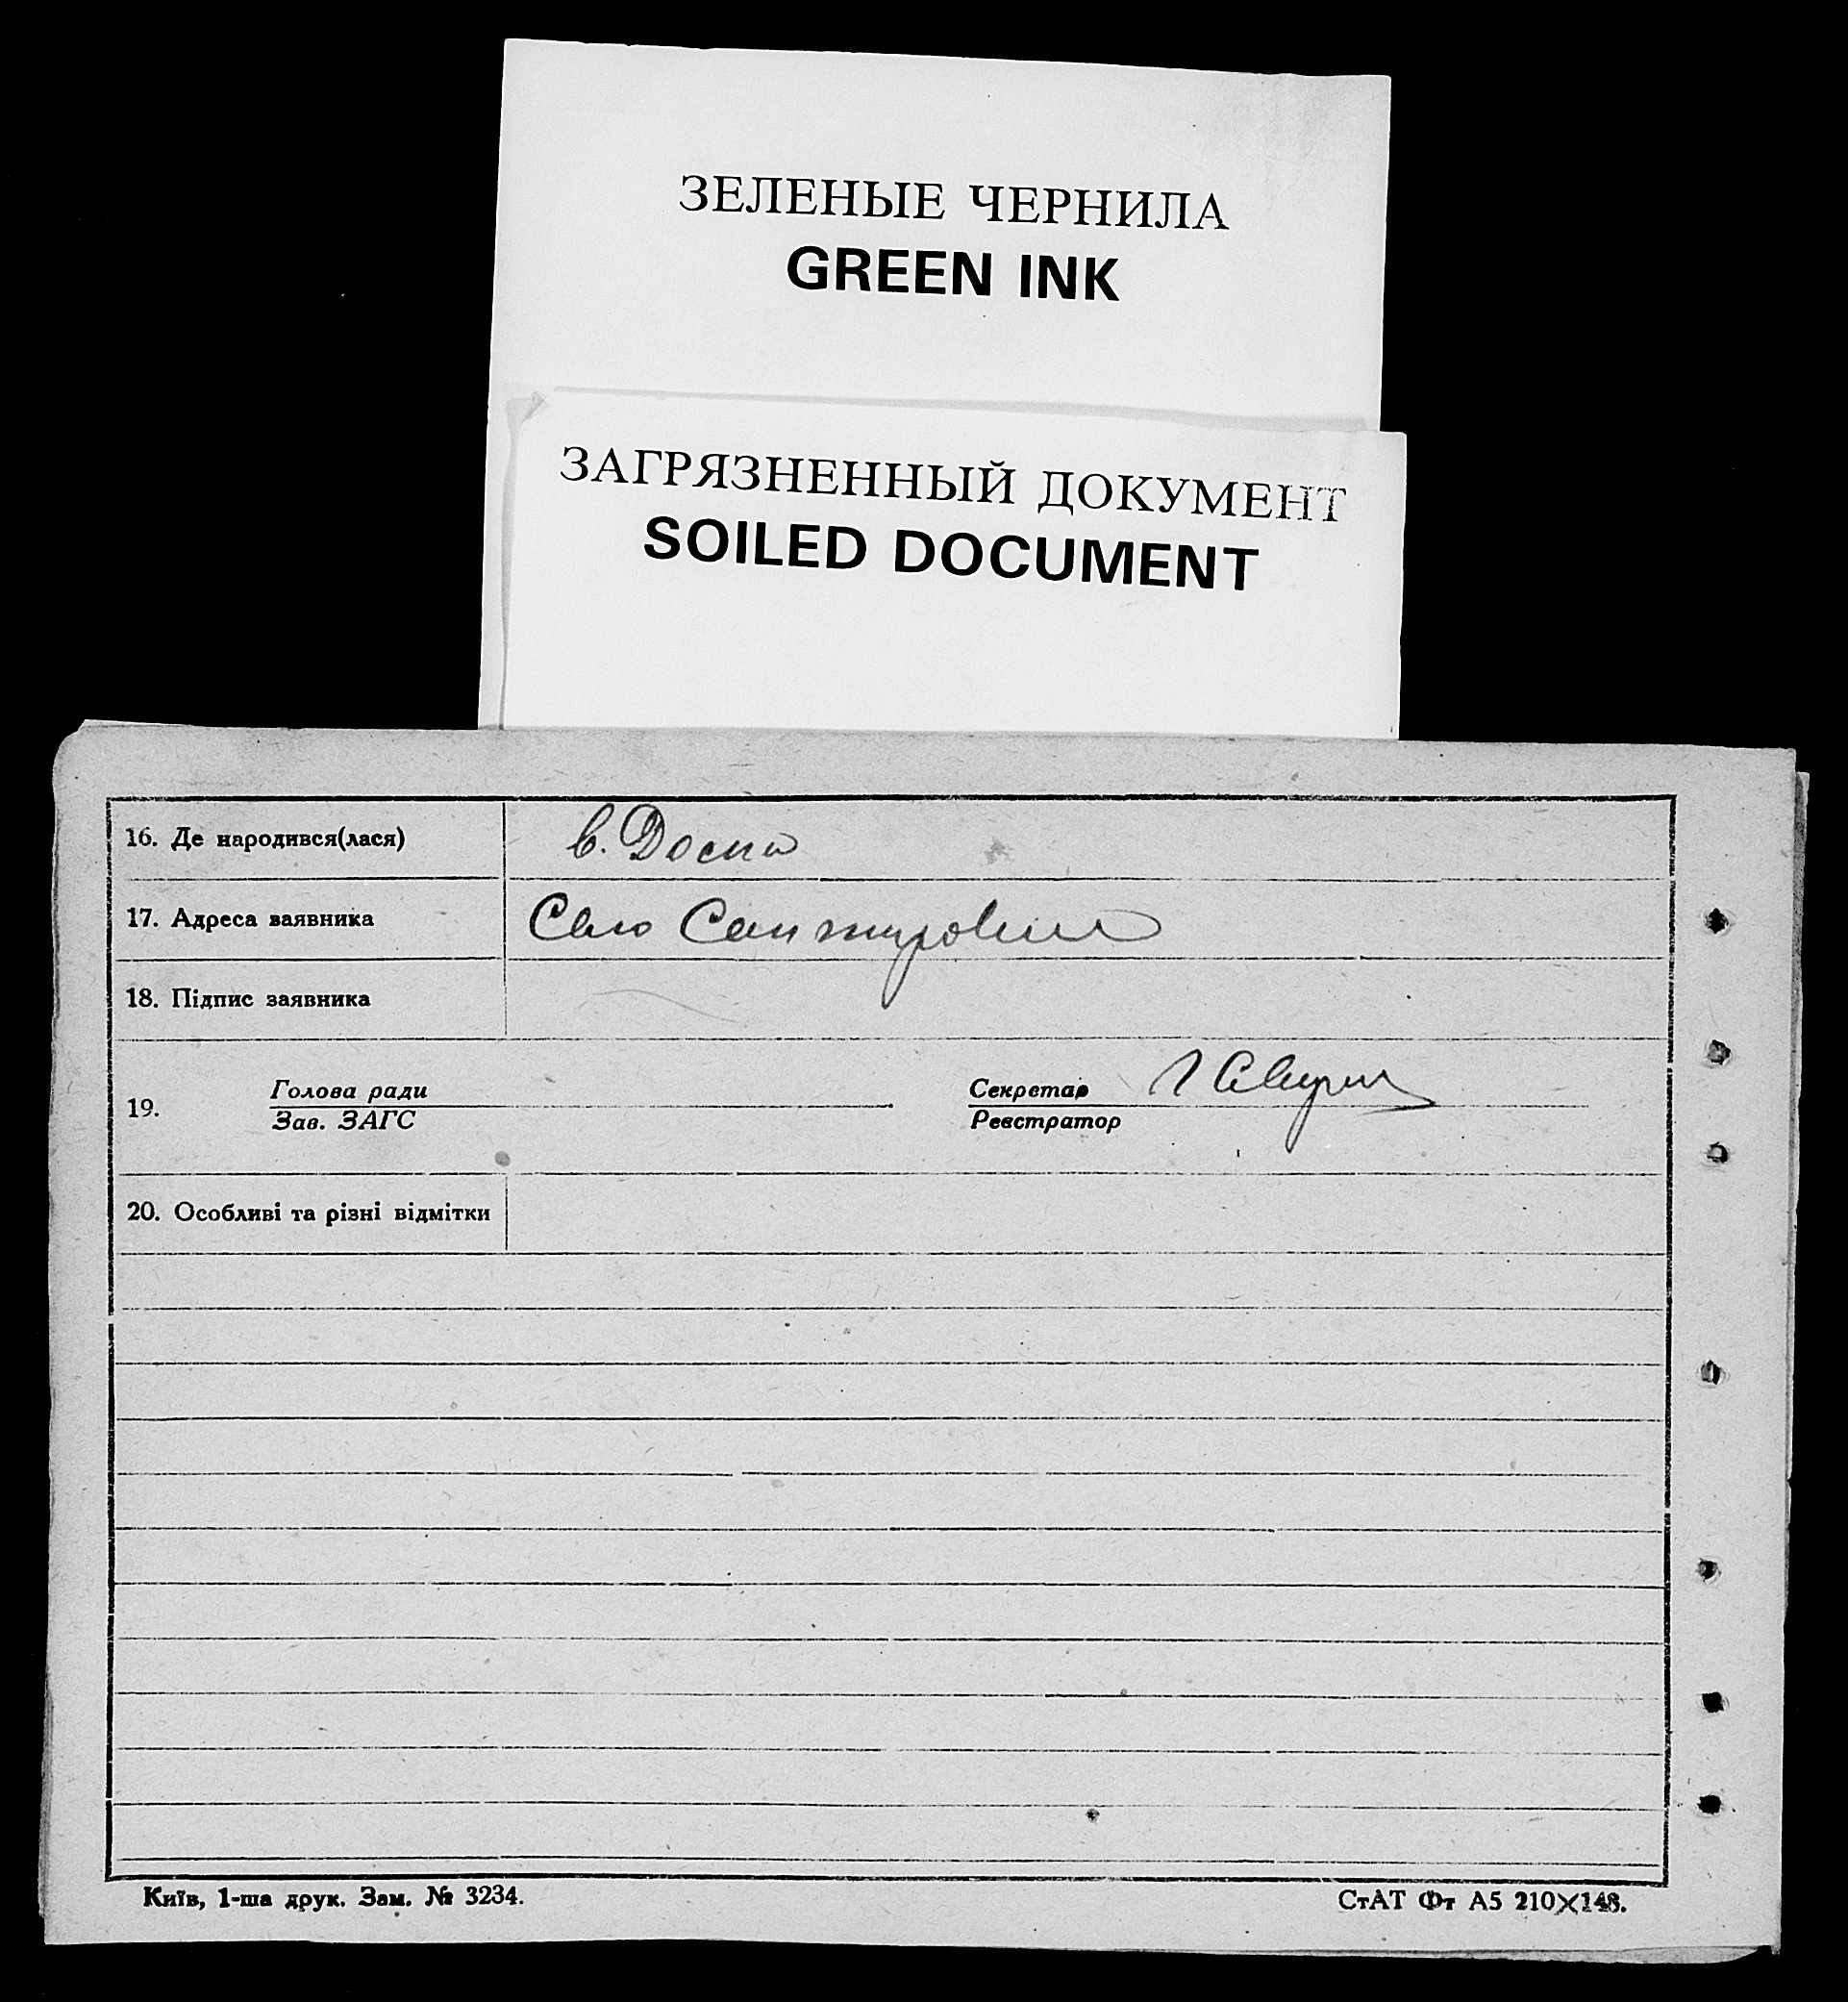 ЗЕЛЕНЫЕ ЧЕРНИЛА
GREEN INK
ЗАГРЯЗНЕННЫЙ ДОКУМЕНТ
SOILED DOCUMENT
16. Де народився(лася)
17. Адреса заявника Село
18. Підпис заявника
19. Голова ради Секретар
Зав. ЗАГС Реєстратор
20. Особливі та різні відмітки
Київ, 1-ша друк. Зам. № 3234. СтАТ Фт А5 210×148.